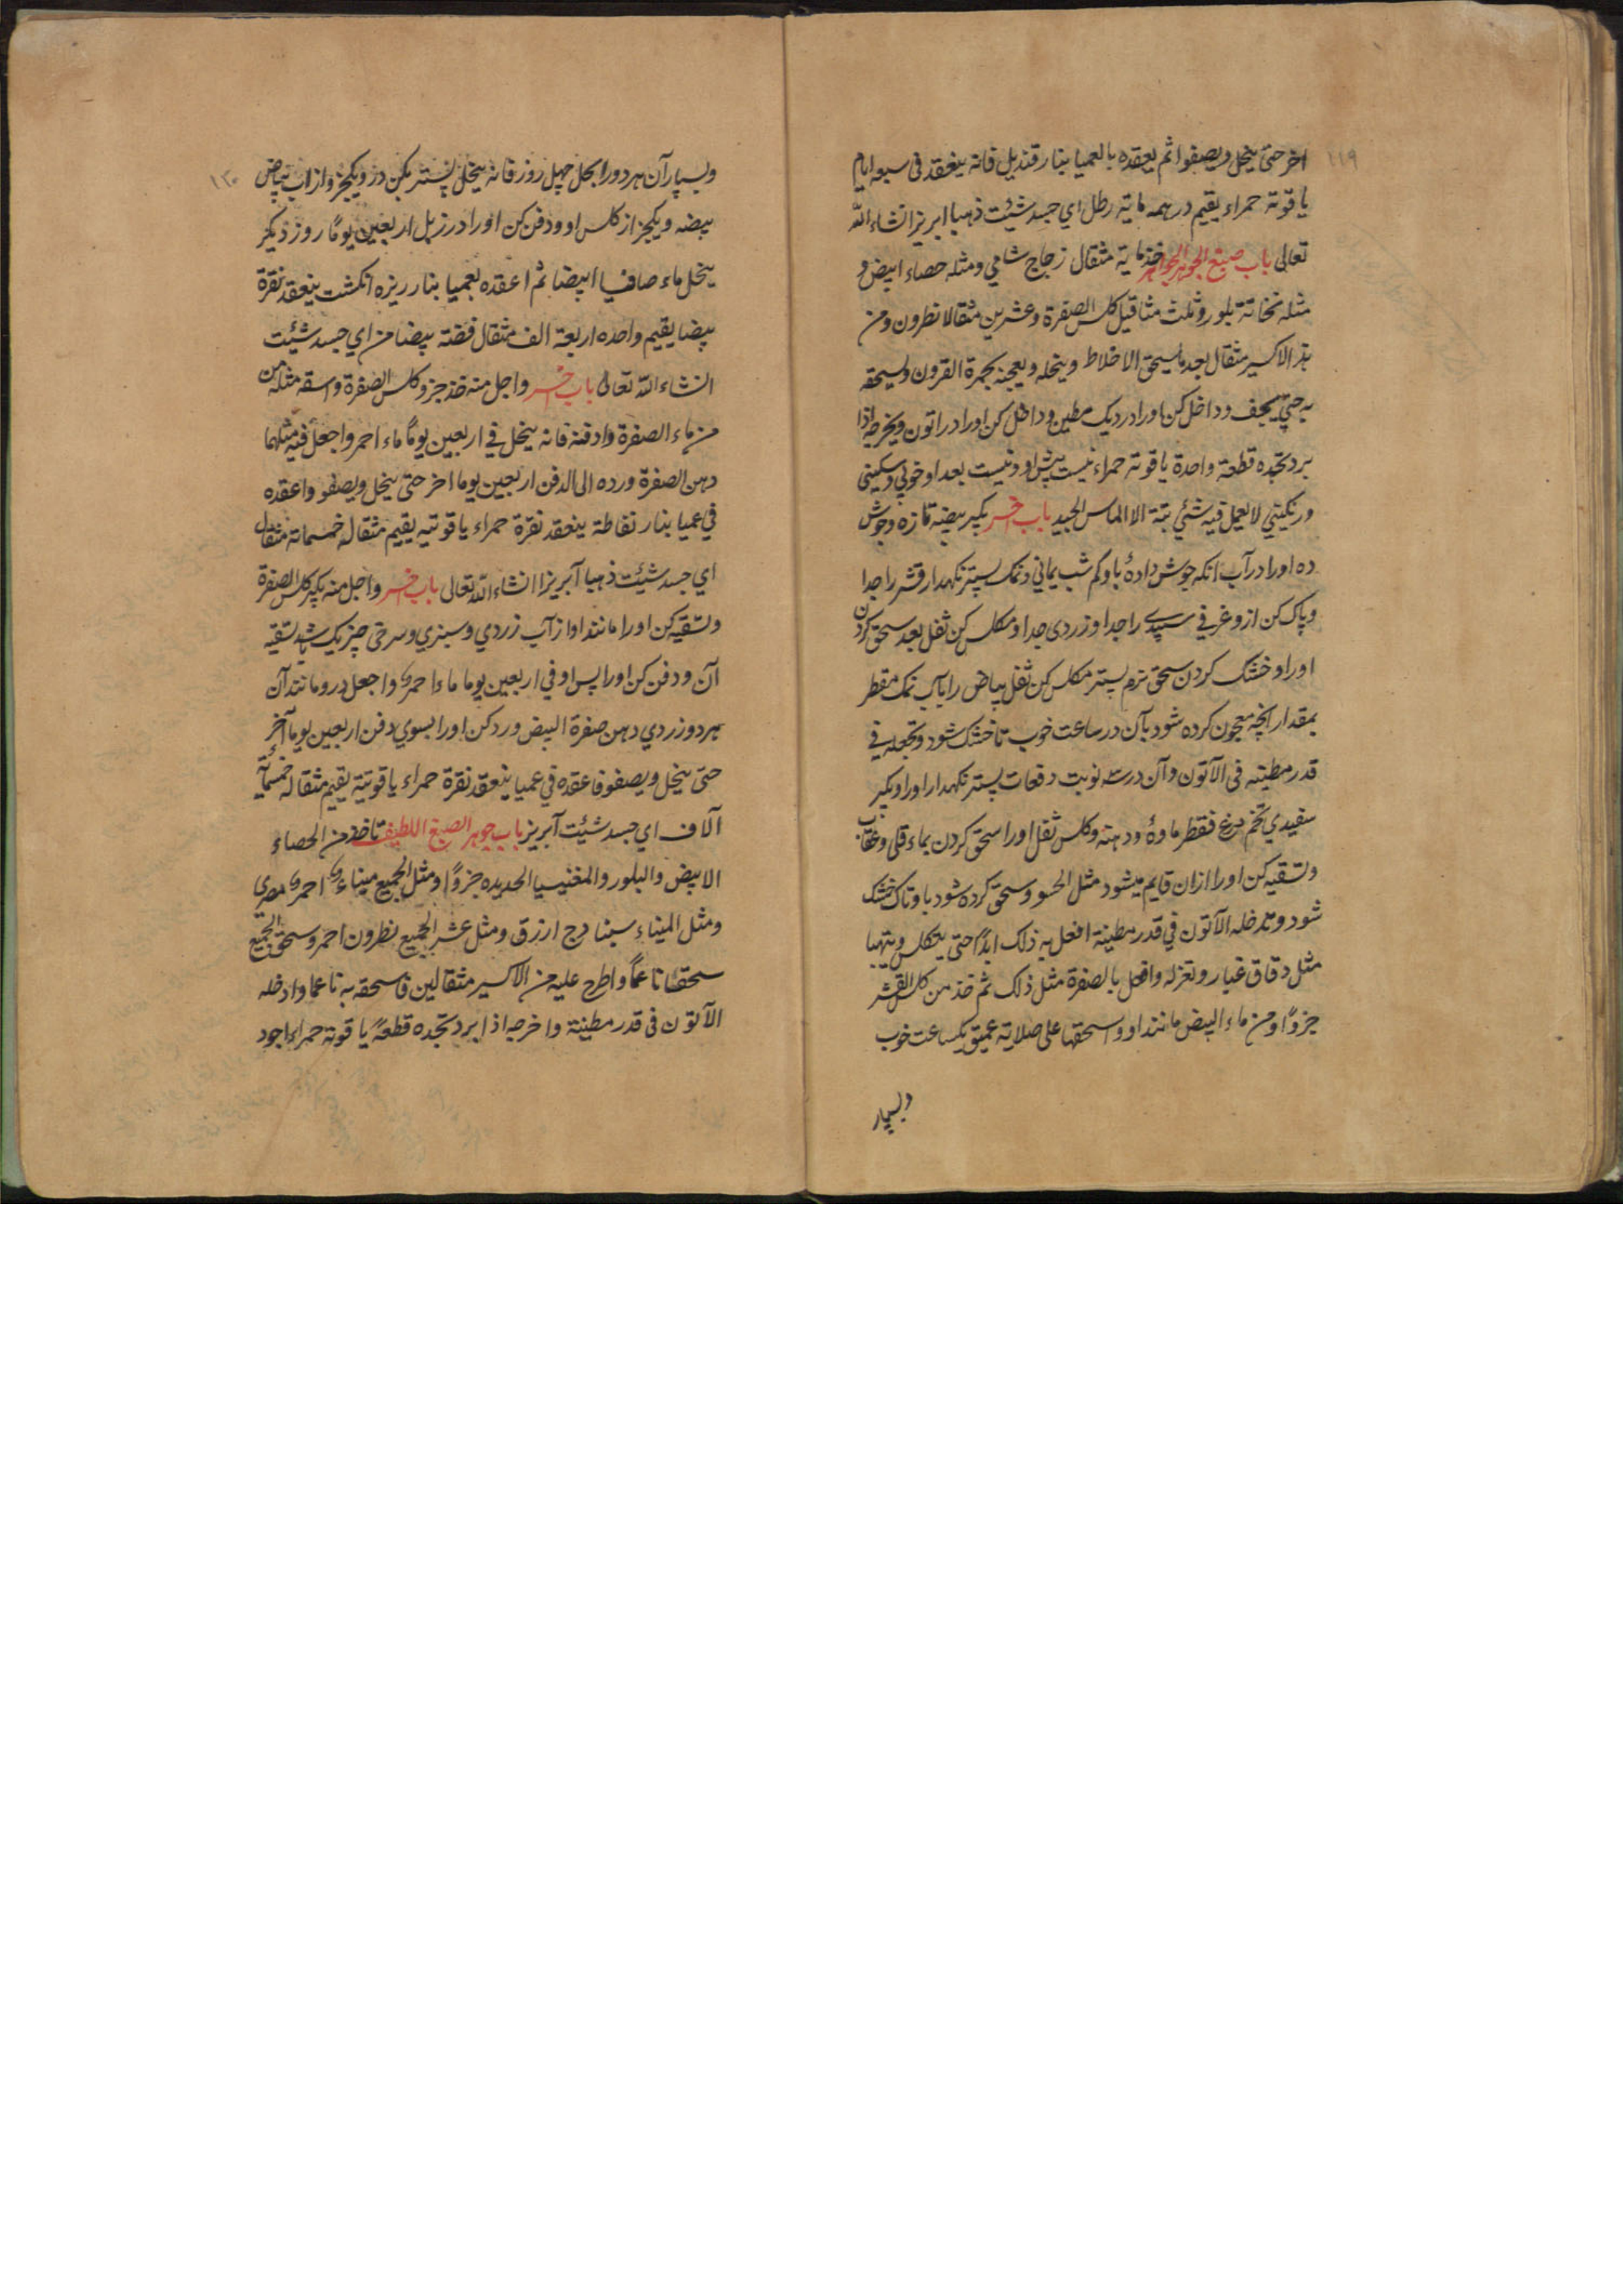 ۱۱۹
اخر حتی ینحل ویصفوا ثم یعقده بالعمیا بنار قندیل فانه ینعقد فی سبعه ایام
یاقوتة حمراء یقیم درهمه مایة رطل ای جسد شیئت ذهبا ابریز انشاء الله
تعالی باب صبغ الجوهر خذ مایة مثقال زجاج شامی ومثله حصاء ابیض و
مثله نخاتة بلور وثلث مثاقیل کلس الصفرة وعشرین مثقالا نطرون ومن
هذ الاکسیر مثقال بعد ما یسحق الاخلاط وینخله ویعجنه بحمرة القرون ویسحقه
به حتی یجف وداخل کن اورا در دیک مطین وداخل کن اورا در اتون ویخرجه اذا
برد تجده قطعة واحدة یاقوتة حمراء نیست پیش او ونیست بعد او خوبی وسکینی
ورنکینی لا یعمل فیه شئ بتة الا الماس الجید باب اخر بکیر بیضه تازه وجوش
ده اورا در آب انکه جوش داده باو کم شب یمانی ونمک پستر نکهدار قشر را جدا
وپاک کن از وغرفی سپیدی را جدا وزردی جدا ومکلس کن ثفل بعد سحق کردن
اورا وخشک کردن سحق نرم پستر مکلس کن ثفل بیاض را بآب نمک مقطر
بمقدار انچه معجون کرده شود بآن در ساعت خوب تا خشک شود وتجعله فی
قدر مطینه فی الآتون وآن در سه نوبت دفعات پستر نکهدار اورا وبکیر
سفیدی تخم مرغ فقطر ماوهٔ ودهنه وکلس ثفل اورا سحق کردن بماء قلی وعقاب
وتسقیه کن اورا از ان قایم میشود مثل الحسو وسحق کرده شود باو تاک خشک
شود وتدخله الآتون فی قدر مطینة افعل به ذلک ابدًا حتی یتکلس ویتهیا
مثل دقاق غبار وتعزله وافعل بالصفرة مثل ذلک ثم خذ من کلس القشر
جزوًا ومن ماء البیض مانند او واسحقها علی صلایة عمیق یکساعت خوب
وبسپار
۱۲۰
وبسپار آن هر دو را بحل چهل روز فانه ینحل پستر بکن در ویکجز واز آب بیاض
بیضه ویکجز از کلس او ودفن کن اورا در زبل اربعین یومًا روز دیکر
ینحل ماء صافیا ابیضا ثم اعقده بعمیا بنار ریزه انکشت ینعقد نقرة
بیضا یقیم واحده اربعة الف مثقال فضة بیضا من ای جسد شیئت
انشاء الله تعالی باب اخر واجل منه خذ جزو کلس الصفرة واسقه مثله من
من ماء الصفرة وادفنه فانه ینحل فی اربعین یومًا ماء احمر واجعل فیه مثلهما
دهن الصفرة ورده الی الدفن اربعین یوما اخر حتی ینحل ویصفو واعقده
فی عمیا بنار نفاطة ینعقد نقرة حمراء یاقوتیه یقیم مثقاله خمسمائة مثقال
ای جسد شیئت ذهبا آبریزا انشاء الله تعالی باب اخر واجل منه بکیر کلس الصفرة
وتسقیه کن اورا مانند او از آب زردی وسبزی وسرخی چیز یک شد تسقیه
آن ودفن کن اورا پس او فی اربعین یوما ماء احمر واجعل درو مانند آن
هر دو زردی دهن صفرة البیض ورد کن اورا بسوی دفن اربعین یوما آخر
حتی ینحل ویصفو فاعقده فی عمیا ینعقد نقرة حمراء یاقوتیة یقیم مثقاله خمسمایة
آلاف ای جسد شیئت آبریز باب جوهر الصبغ اللطیف تاخذ من الحصاء
الابیض والبلور والمغنیسیا الحدیده جزوًا ومثل الجمیع میناء احمر مصری
ومثل المیناء سبنادج ازرق ومثل عشر الجمیع نطرون احمر وسحق الجمیع
سحقًا ناعمًا واطرح علیه من الاکسیر مثقالین فاسحقه به ناعما وادخله
الآتون فی قدر مطینة واخرجه اذا برد تجده قطعةً یاقوتة حمراء اجود